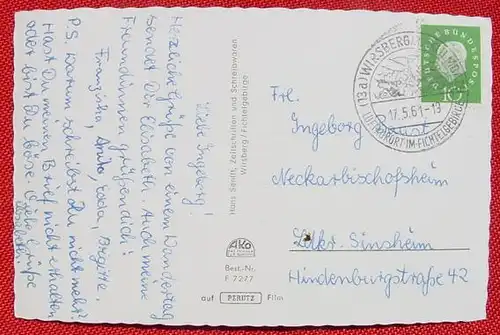 Liebe Ingeborg!
Herzliche Grüße von einem Wandertag
sendet Dir Elisabeth. Auch meine
Freundinnen grüßen dich!
Franziska, Anita, Brigitte.
P.S. Warum schreibst Du nicht mehr?
Hast Du meinen Brief nicht erhalten
oder bist Du böse. Viele Grüße
Elisabeth.
Hans Senfft, Zeitschriften und Schreibwaren
Wirsberg / Fichtelgebirge
AKO
Best.-Nr.
F 7277
auf PERUTZ Film
(13a) WIRSBERG
17.5.61-13
LUFTKURORT IM FICHTELGEBIRGE
DEUTSCHE BUNDESPOST
10
Frl.
Ingeborg
Neckarbischofsheim
Lkr. Sinsheim
Hindenburgstraße 42